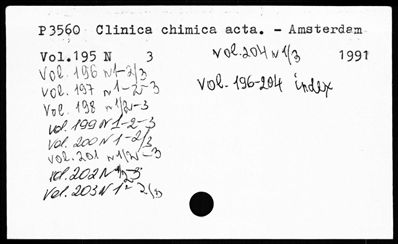 P3560 Clinica chimica acta. - Amsterdam
Vol.195 N 3 1991
Vol. 196 N1-2/3
Vol. 197 N1-2-3
Vol. 198 N1/2-3
Vol. 199 N1-2-3
Vol. 200 N1-2/3
Vol. 201 N1/2-3
Vol. 202 N1/2-3
Vol. 203 N1-2/3
Vol. 204 N1/3
Vol. 196-204 index